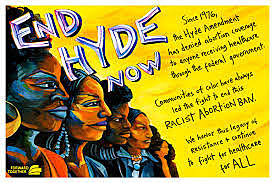 END
HYDE
NOW
Since 1976,
the Hyde Amendment
has denied abortion coverage
to anyone receiving healthcare
through the federal government.
Communities of color have always
led the fight to end this
RACIST ABORTION BAN.
We honor this legacy of
resistance & continue
to fight for healthcare
for ALL
FORWARD
TOGETHER